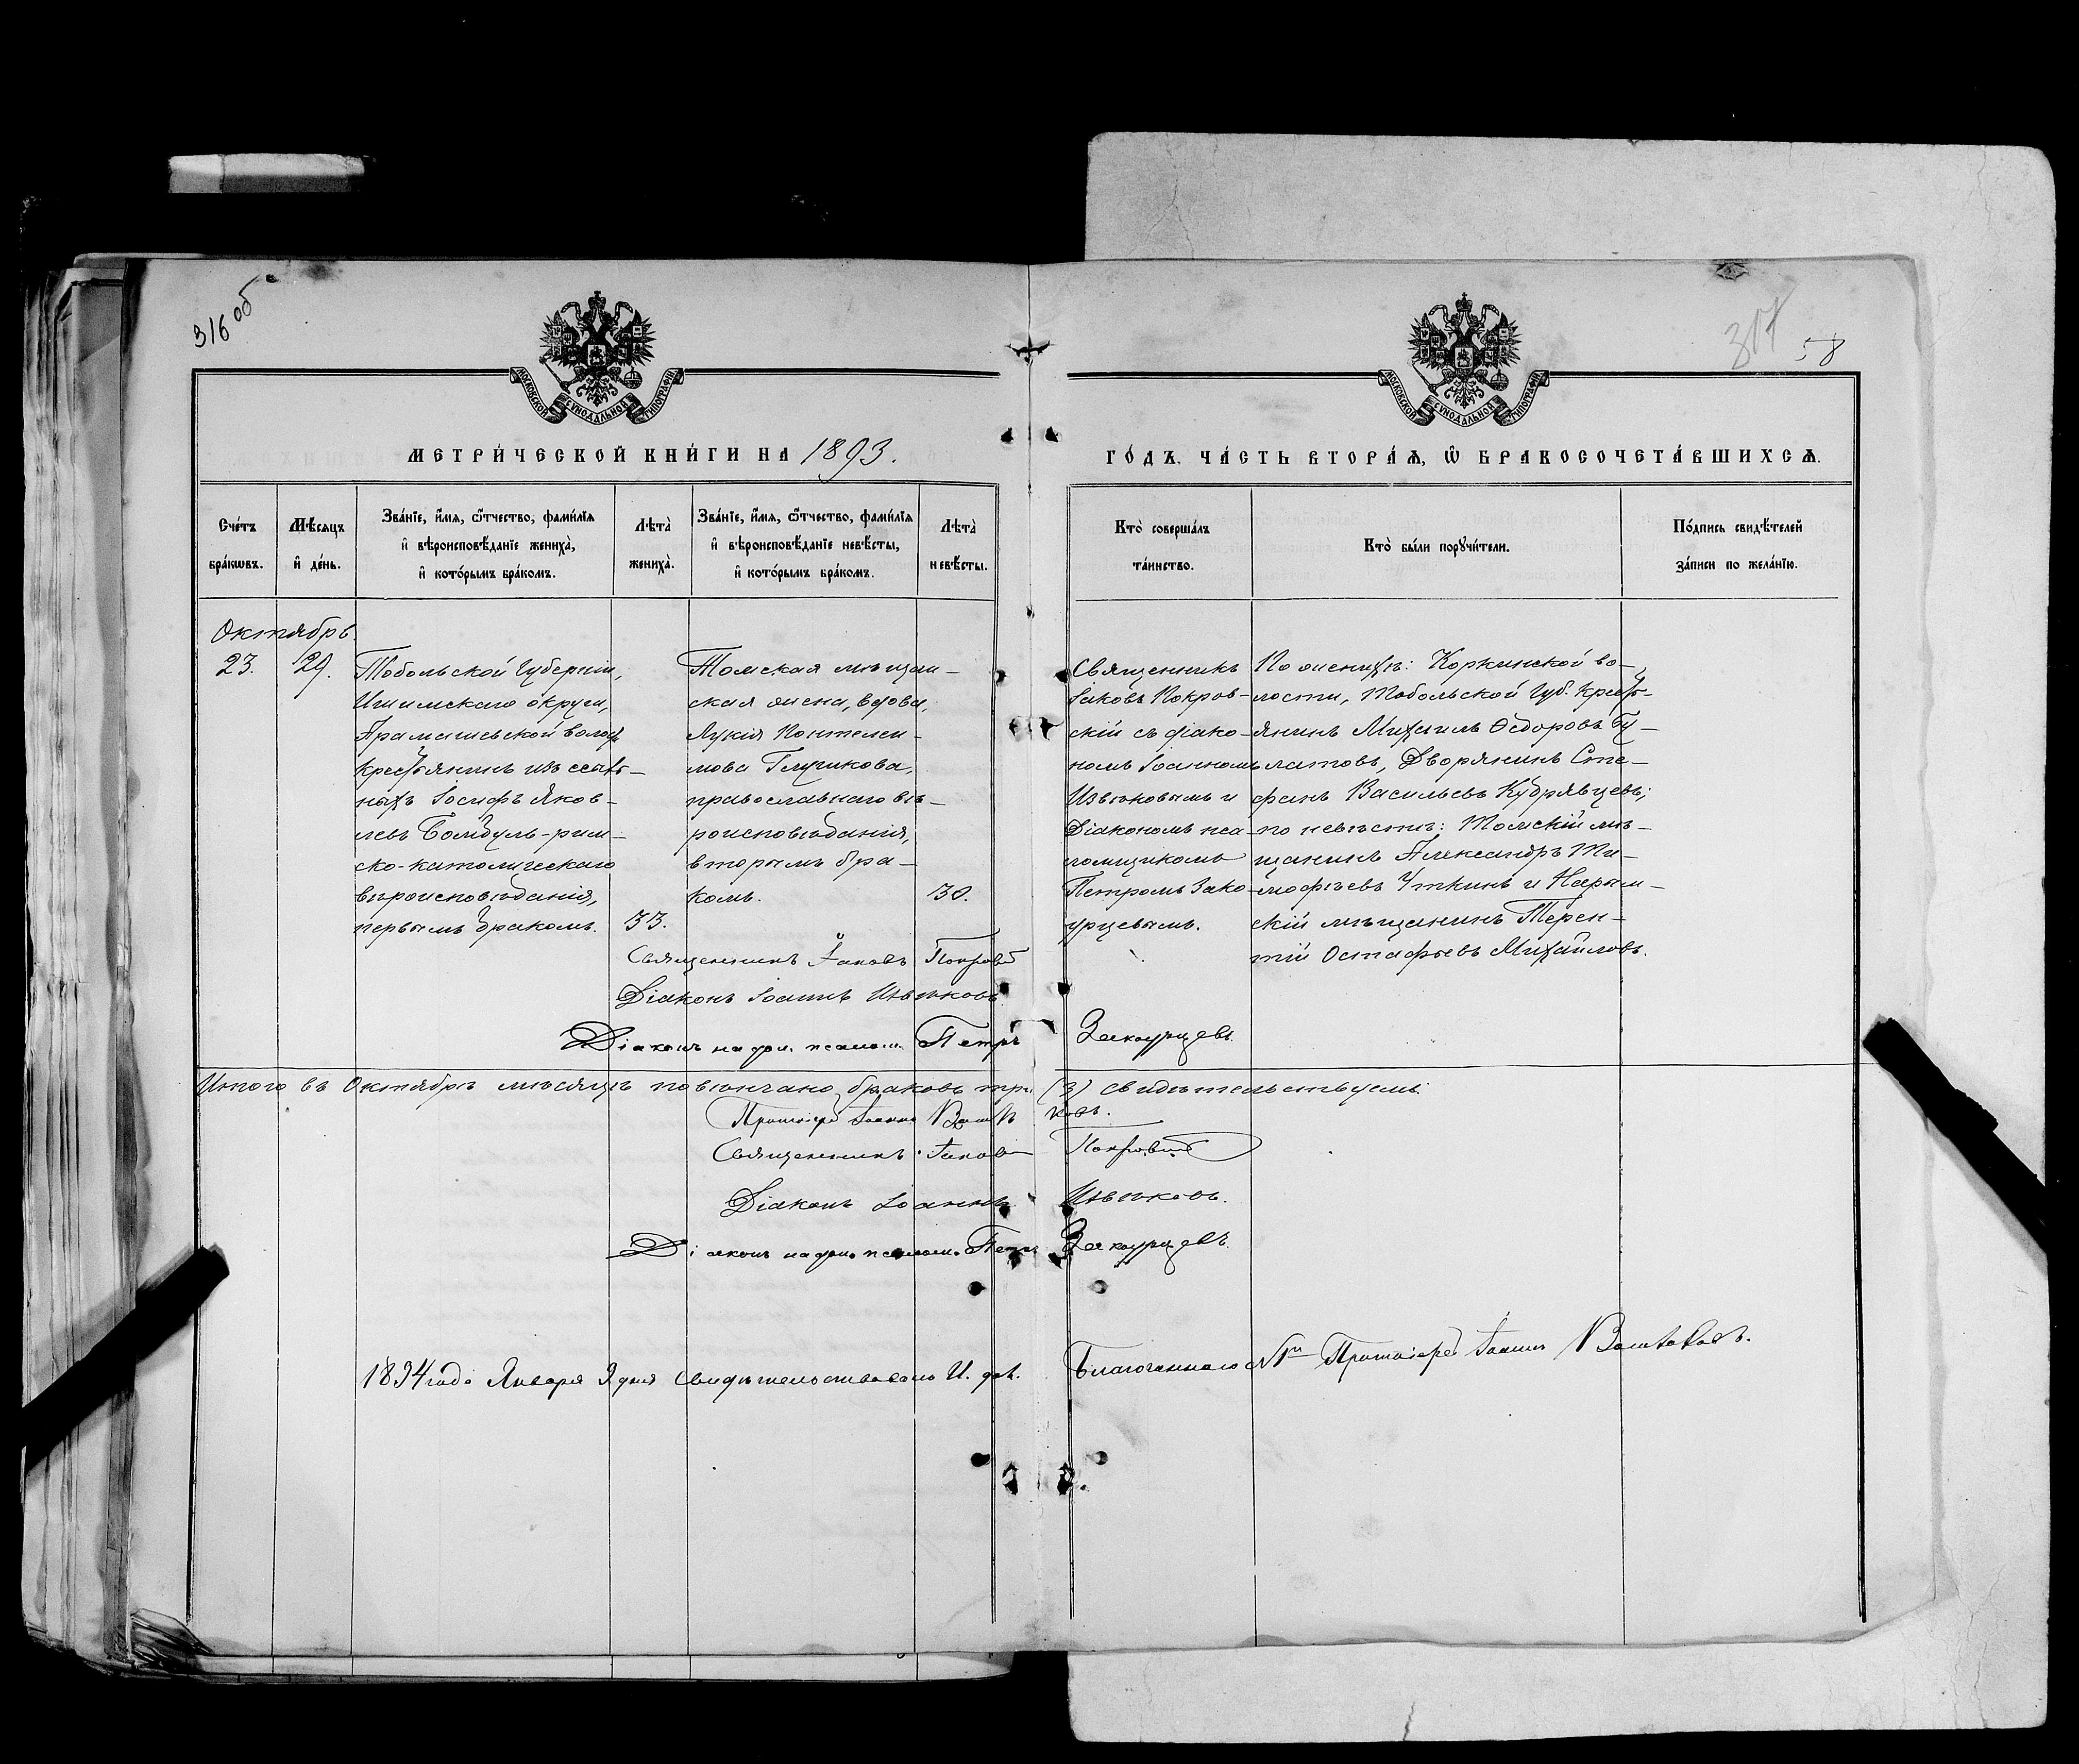 316 об
317
58
МОСКОВСКОЙ СѴНОДАЛЬНОЙ ТИПОГРАФІИ
МОСКОВСКОЙ СѴНОДАЛЬНОЙ ТИПОГРАФІИ
МЕТРИ́ЧЕСКОЙ КНИ́ГИ НА 1893.
ГО́ДЪ, ЧА́СТЬ ВТОРА́Ѧ, Ѡ҆ БРАКОСОЧЕТА́ВШИХСѦ.
Сче́тъ
бра́кѡвъ.
Мѣ́сяцъ
и҆ де́нь.
Зва́нїе, и҆́мя, ѻ҆́тчество, фами́лїя
и҆ вѣроисповѣ́данїе жениха̀,
и҆ кото́рымъ бра́комъ.
Лѣта̀
жениха̀.
Зва́нїе, и҆́мя, ѻ҆́тчество, фами́лїя
и҆ вѣроисповѣ́данїе невѣ́сты,
и҆ кото́рымъ бра́комъ.
Лѣта̀
невѣ́сты.
Кто̀ соверша́лъ
та́инство.
Кто̀ бы́ли порꙋчи́тели.
По́дпись свидѣ́телей
за́писи по жела́нїю.
Октябрь.
23.
29.
Тобольской Губерніи,
Ишимскаго округа,
волос
Крестьянинъ изъ ссыль-
ныхъ Іосифъ Яков-
левъ -рим-
ско-католическаго
вѣроисповѣданія,
первымъ бракомъ.
33.
Томская мѣщан-
ская жена, вдова,
Лукія Пантелеи-
мова
православнаго вѣ-
роисповѣданія,
вторымъ бра-
комъ.
30.
Священникъ
Іаковъ Покров-
скій съ діако-
номъ Іоанномъ
Цвѣтковымъ и
Діакономъ пса-
ломщикомъ
Петромъ Зако-
урцевымъ.
По женихѣ: Коркинской во-
лости, Тобольской Губ. Кресть-
янинъ Михаилъ Ѳедоровъ Бу-
латовъ, Дворянинъ Сте-
фанъ Васильевъ Кудрявцевъ;
по невѣстѣ: Томскій мѣ-
щанинъ Александръ Ти-
мофѣевъ Уткинъ и Нарым-
скій мѣщанинъ Терен-
тій Остафьевъ Михайловъ.
Священникъ Іаковъ Покров
Діаконъ Іоаннъ Цвѣтковъ
Діаконъ на дол. псалом. Петръ Закоурцевъ.
Итого въ Октябрѣ мѣсяцѣ повѣнчано браковъ три (3) свидѣтельствуемъ:
Протоіерей Іоаннъ
Священникъ Іаковъ Покровскій
Діаконъ Іоаннъ Цвѣтковъ.
Діаконъ на дол. псалом. Петръ Закоурцевъ.
1894 года Января 9 дня свидѣтельствовалъ И. дол. Благочиннаго № 1й Протоіерей Іоаннъ